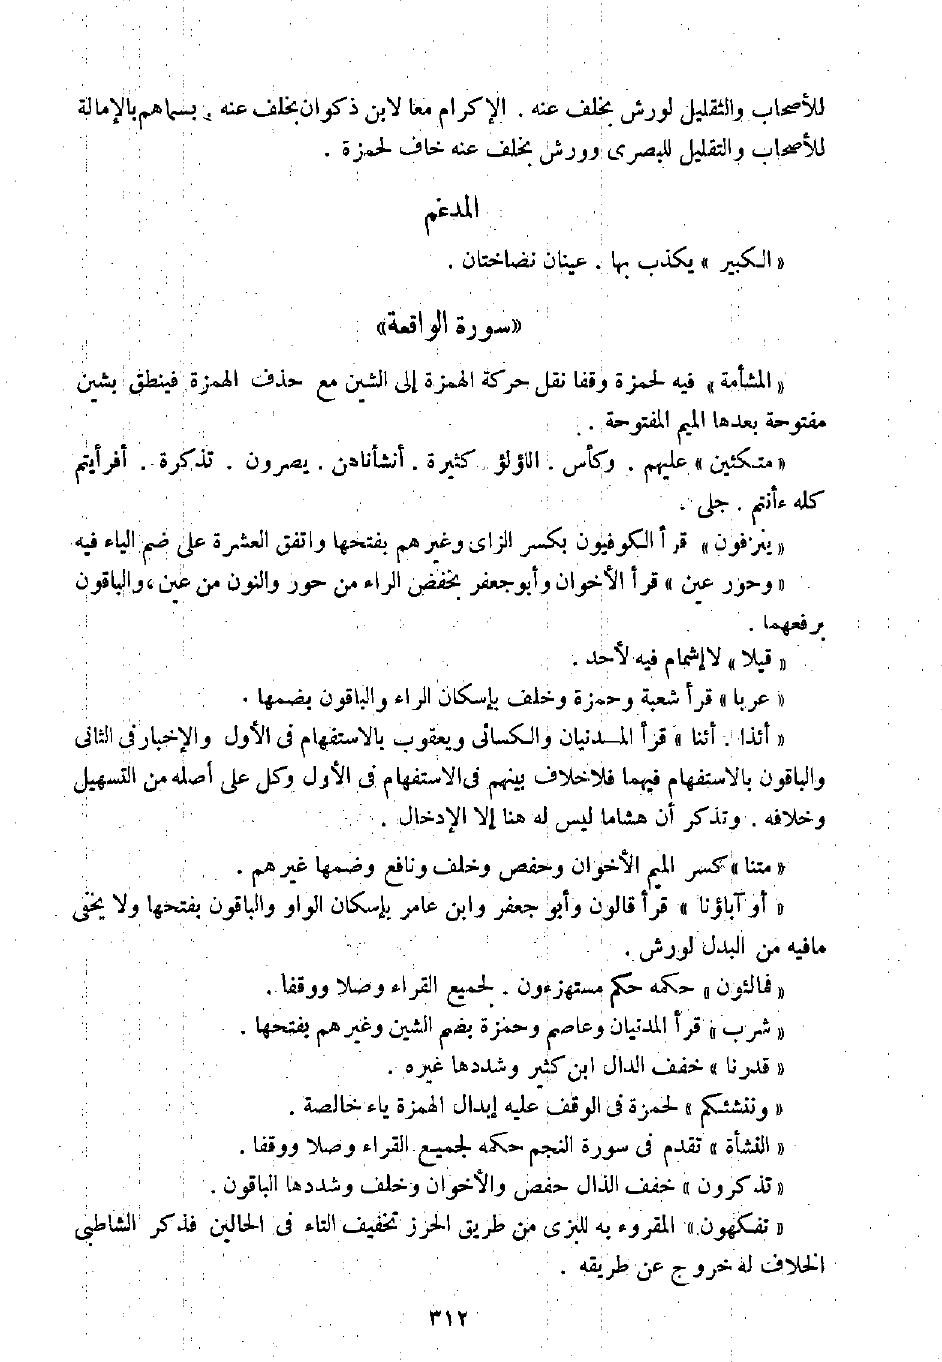 للأصحاب والتقليل لورش بخلف عنه . الإكرام معا لابن ذكوان بخلف عنه . بسماهم بالإمالة
للأصحاب والتقليل للبصرى وورش بخلف عنه خاف لحمزة .
المدغم
« الكبير » يكذب بها . عينان نضاختان .
«سورة الواقعة»
« المشأمة » فيه لحمزة وقفا نقل حركة الهمزة إلى الشين مع حذف الهمزة فينطق بشين
مفتوحة بعدها الميم المفتوحة .
« متكئين » عليهم . وكأس . اللؤلؤ كثيرة . أنشأناهن . يصرون . تذكرة . أفرأيتم
كله ءأنتم . جلى .
« ينزفون » قرأ الكوفيون بكسر الزاى وغيرهم بفتحها واتفق العشرة على ضم الياء فيه
« وحور عين » قرأ الأخوان وأبو جعفر بخفض الراء من حور والنون من عين ، والباقون
برفعهما .
« قيلا » لا إشمام فيه لأحد .
« عربا » قرأ شعبة وحمزة وخلف بإسكان الراء والباقون بضمها .
« أئذا . أئنا » قرأ المدنيان والكسائى ويعقوب بالاستفهام فى الأول والإخبار فى الثانى
والباقون بالاستفهام فيهما فلاخلاف بينهم فى الاستفهام فى الأول وكل على أصله من التسهيل
وخلافه . وتذكر أن هشاما ليس له هنا إلا الإدخال .
« متنا » كسر الميم الأخوان وحفص وخلف ونافع وضمها غيرهم .
« أو آباؤنا » قرأ قالون وأبو جعفر وابن عامر بإسكان الواو والباقون بفتحها ولا يخفى
مافيه من البدل لورش .
« فمالئون » حكمه حكم مستهزءون . لجميع القراء وصلا ووقفا .
« شرب » قرأ المدنيان وعاصم وحمزة بضم الشين وغيرهم بفتحها .
« قدرنا » خفف الدال ابن كثير وشددها غيره .
« وننشئكم » لحمزة فى الوقف عليه إبدال الهمزة ياء خالصة .
« النشأة » تقدم فى سورة النجم حكمه لجميع القراء وصلا ووقفا .
« تذكرون » خفف الذال حفص والأخوان وخلف وشددها الباقون .
« تفكهون » المقروء به للبزى من طريق الحرز تخفيف التاء فى الحالين فذكر الشاطبى
الخلاف له خروج عن طريقه .
٣١٢